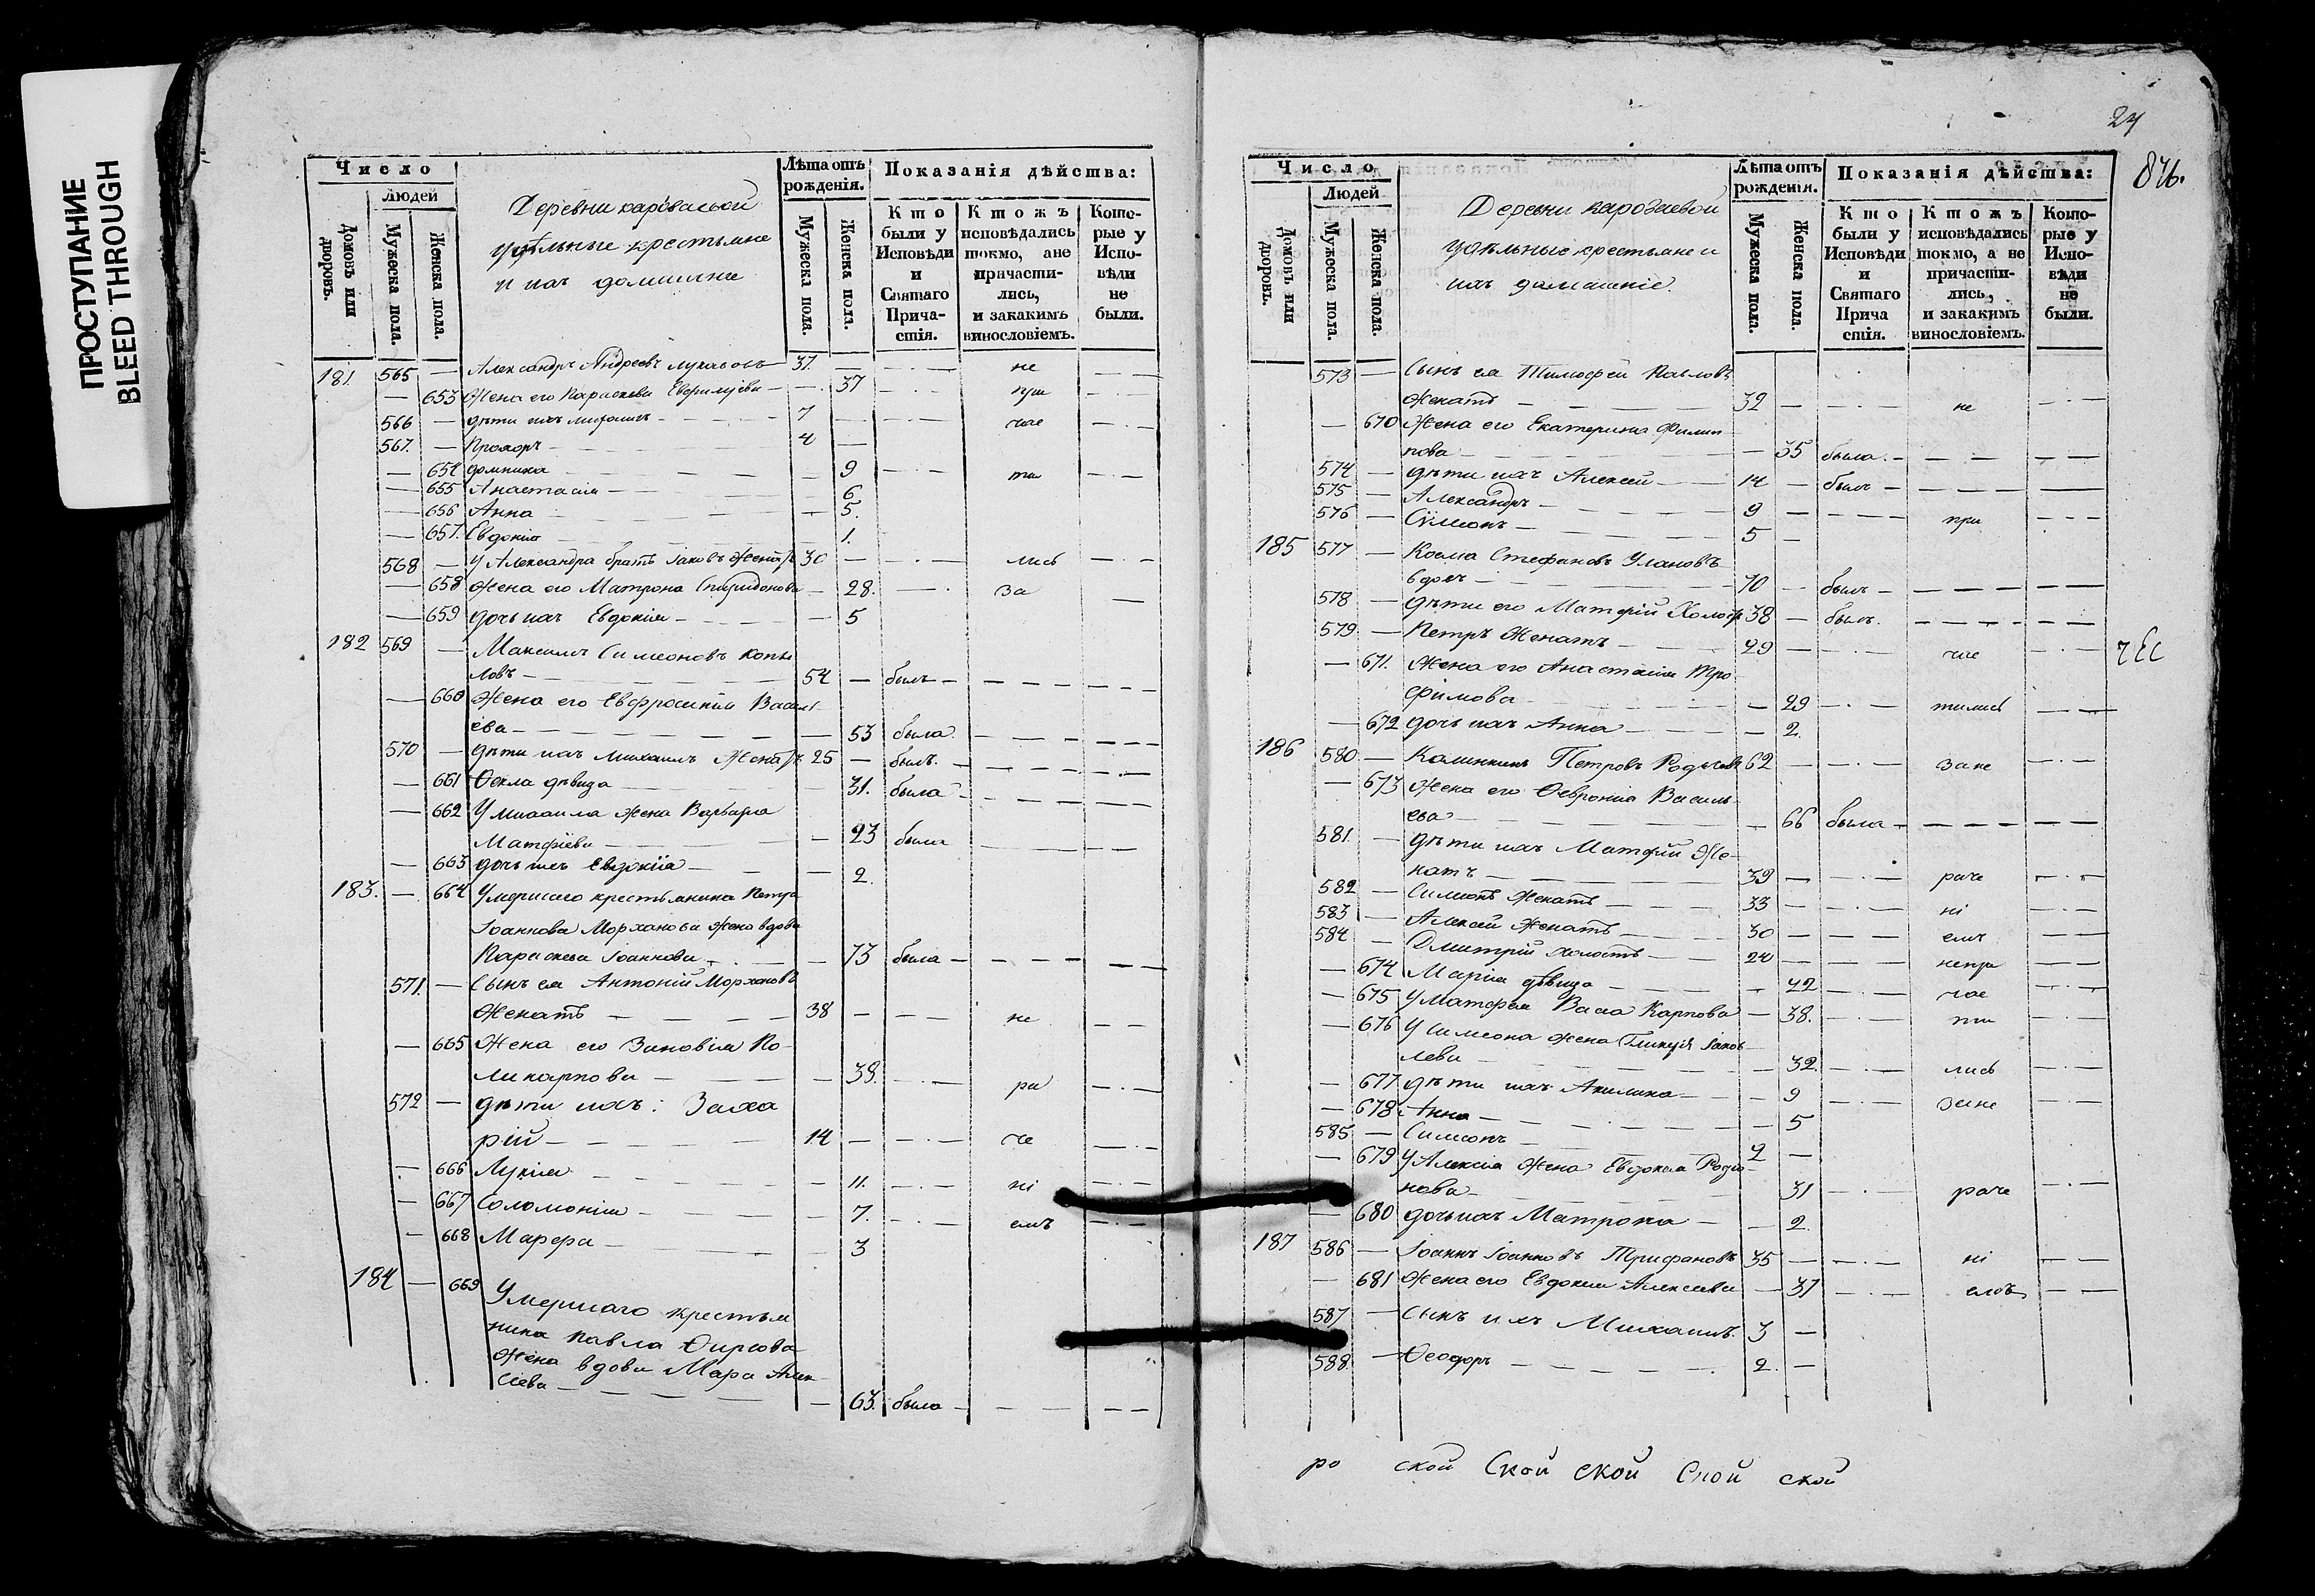 ПРОСТУПАНИЕ
BLEED THROUGH
Число
Людей
Домовъ или дворовъ.
Мужеска пола.
Женска пола.
Деревни
удѣльные крестьяне
и ихъ домашние
Лѣта отъ рожденія.
Мужеска пола.
Женска пола.
Показанія дѣйства:
Кто были у Исповѣди и Святаго Прича-стія.
Ктожъ исповѣдались токмо, ане причасти-лись, и закакимъ винословіемъ.
Кото-рые у Испо-вѣди не были.
181. 565 — Александръ Андреевъ 37. — не
— 653 Жена его Параскева — 37 при
566 — дѣти ихъ 7 — чае
567. — Прохоръ 4 —
— 654 домника — 9 ти
— 655 Анастасія — 6
— 656 Анна — 5.
— 657. Евдокія 1.
568 — У Александра братъ Іаковъ женатъ 30 — лись
— 658 Жена его Матрона Спиридонова — 28. за
— 659 дочь ихъ Евдокія — 5
182 569 — Максимъ Симеоновъ Копы
ловъ 54 — былъ
— 660 Жена его Евфросинія Василь
ева — 53 была
570 — дѣти ихъ Михаилъ женатъ 25 — былъ.
— 661 Ѳекла дѣвица 31. была
— 662 У михаила жена Варвара
Матфіева — 23 была
— 663 дочь ихъ Евдокіа — 2.
183. — 664 Умершаго крестьянина Петра
Іоаннова Морханова жена вдова
Параскева Іоаннова — 73 была
571. — Сынъ ея Антоній Морхановъ
женатъ 38 — не
— 665 Жена его Зиновія По
ликарпова — 38. ра
572 — дѣти ихъ: Заха
рій 14 — че
— 666 Лукія — 11. ні
— 667 Соломонія — 7. емъ
— 668 Марфа — 3
184 — 669 Умершаго крестья
нина Павла
жена вдова Алек
сіева — 63. была
24
846.
Число
Людей
Домовъ или дворовъ.
Мужеска пола.
Женска пола.
Деревни
удѣльные крестьяне и
ихъ домашніе.
Лѣта отъ рожденія.
Мужеска пола.
Женска пола.
Показанія дѣйства:
Кто были у Исповѣди и Святаго Прича стія.
Ктожъ исповѣдались токмо, а не причасти-лись, и закакимъ винословіемъ.
Кото-рые у Испо-вѣди не были.
573 — Сынъ ея Тимофей Павловъ
женатъ 32 — не
— 670 Жена его Екатерина Филип
пова — 35 была
574 — дѣти ихъ Алексей 14 — былъ
575 — Александръ 9 —
576 — Сѵмеонъ 5 — при
185 577 — Косма Стефановъ Улановъ
вдовъ 70 — былъ
578 — дѣти его Матфій холостъ 38 — былъ.
579. — Петръ женатъ 29 — чае
— 671. Жена его Анастасія Тро
фимова — 29 тились
— 672 дочь ихъ Анна — 2.
186 580 — Калинникъ Петровъ 62 — зане
— 673 Жена его Ѳевронія Василь
ева — 66 была
581. — дѣти ихъ Матфій же
натъ 39 — раче
582 — Симеонъ женатъ 33 — ні
583 — Алексей женатъ 30 — емъ
584 — Дмитрій холостъ 20 — непри
— 674 Марія дѣвица — 22 чае
— 675 У Матфея Васса Карпова — 38. ти
— 676 У Симеона жена Гликерія Іаков
лева — 32. лись
— 677 дѣти ихъ Акилина — 9 зане
— 678 Анна — 5
585 — Симеонъ 2 —
— 679 У Алексіа жена Евдокия Родіо
нова 31 раче
— 680 дочь ихъ Матрона — 2.
187 586 — Іоаннъ Іоанновъ Трифановъ 35 — ні
— 681 Жена его Евдокия Алексеева — 31 емъ
587 — Сынъ ихъ Михаилъ. 3 —
588. — Ѳеодоръ 2. —
ро ской Ской ской Ской ской